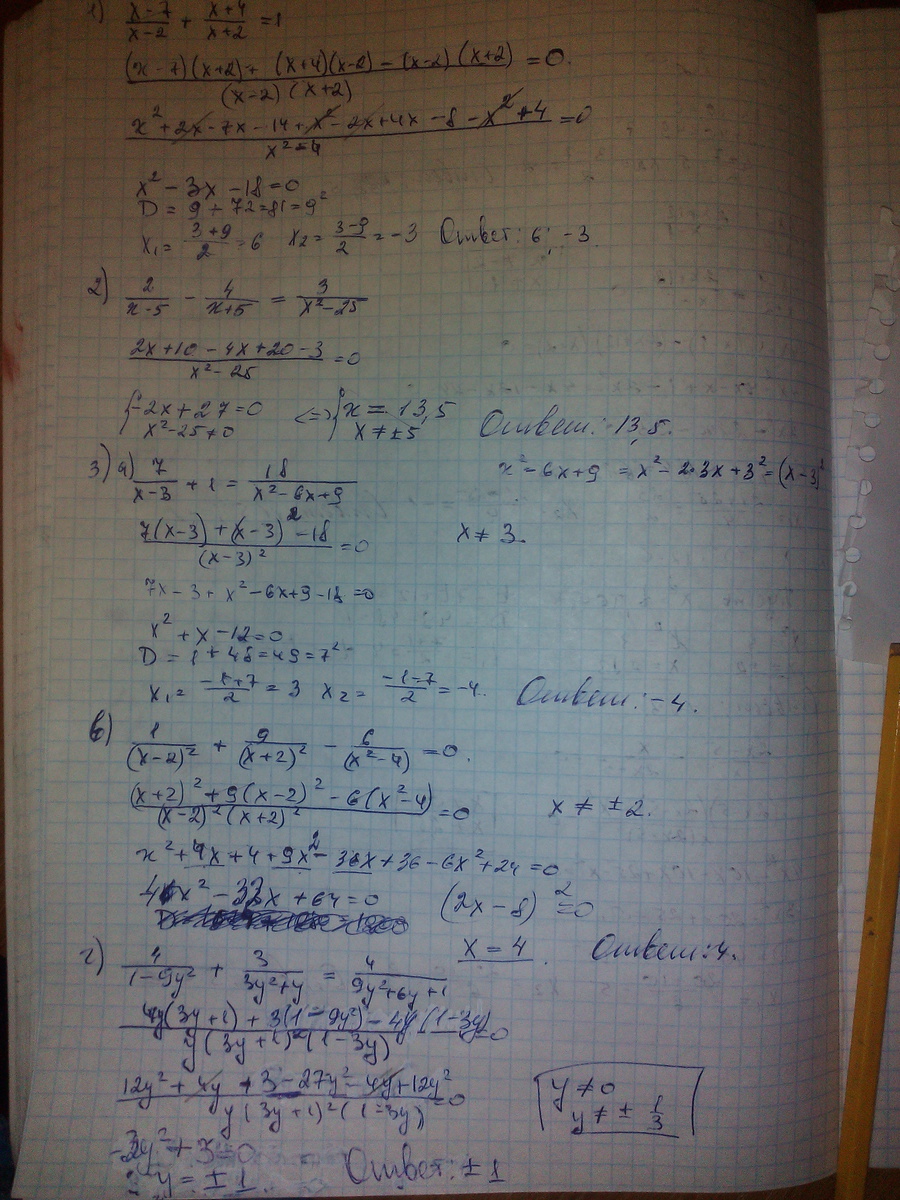 1) (x-7)/(x-2) + (x+4)/(x+2) = 1
((x-7)(x+2) + (x+4)(x-2) - (x-2)(x+2))/((x-2)(x+2)) = 0.
(x² + 2x - 7x - 14 + x² - 2x + 4x - 8 - x² + 4)/(x² - 4) = 0
x² - 3x - 18 = 0
D = 9 + 72 = 81 = 9²
x₁ = (3+9)/2 = 6 x₂ = (3-9)/2 = -3 Ответ: 6; -3
2) 2/(x-5) - 4/(x+5) = 3/(x²-25)
(2x+10 - 4x+20 - 3)/(x² - 25) = 0
{ -2x + 27 = 0 <=> { x = 13,5 Ответ: 13,5.
x² - 25 ≠ 0 x ≠ ±5
3) а) 7/(x-3) + 1 = 18/(x² - 6x + 9) x² - 6x + 9 = x² - 2·3x + 3² = (x-3)²
(7(x-3) + (x-3)² - 18)/(x-3)² = 0 x ≠ 3.
7x - 3 + x² - 6x + 9 - 18 = 0
x² + x - 12 = 0
D = 1 + 48 = 49 = 7²
x₁ = (-1+7)/2 = 3 x₂ = (-1-7)/2 = -4. Ответ: -4.
в) 1/(x-2)² + 9/(x+2)² - 6/(x²-4) = 0.
((x+2)² + 9(x-2)² - 6(x²-4))/((x-2)²(x+2)²) = 0 x ≠ ±2.
x² + 4x + 4 + 9x² - 36x + 36 - 6x² + 24 = 0
4x² - 32x + 64 = 0 (2x - 8)² = 0
x = 4. Ответ: 4.
г) 4/(1-9y²) + 3/(3y²+y) = 4/(9y²+6y+1)
(4y(3y+1) + 3(1 - 9y²) - 4y(1-3y))/(y(3y+1)²(1-3y)) = 0
(12y² + 4y + 3 - 27y² - 4y + 12y²)/(y(3y+1)²(1-3y)) = 0
y ≠ 0
y ≠ ± 1/3
-3y² + 3 = 0
y = ±1. Ответ: ±1